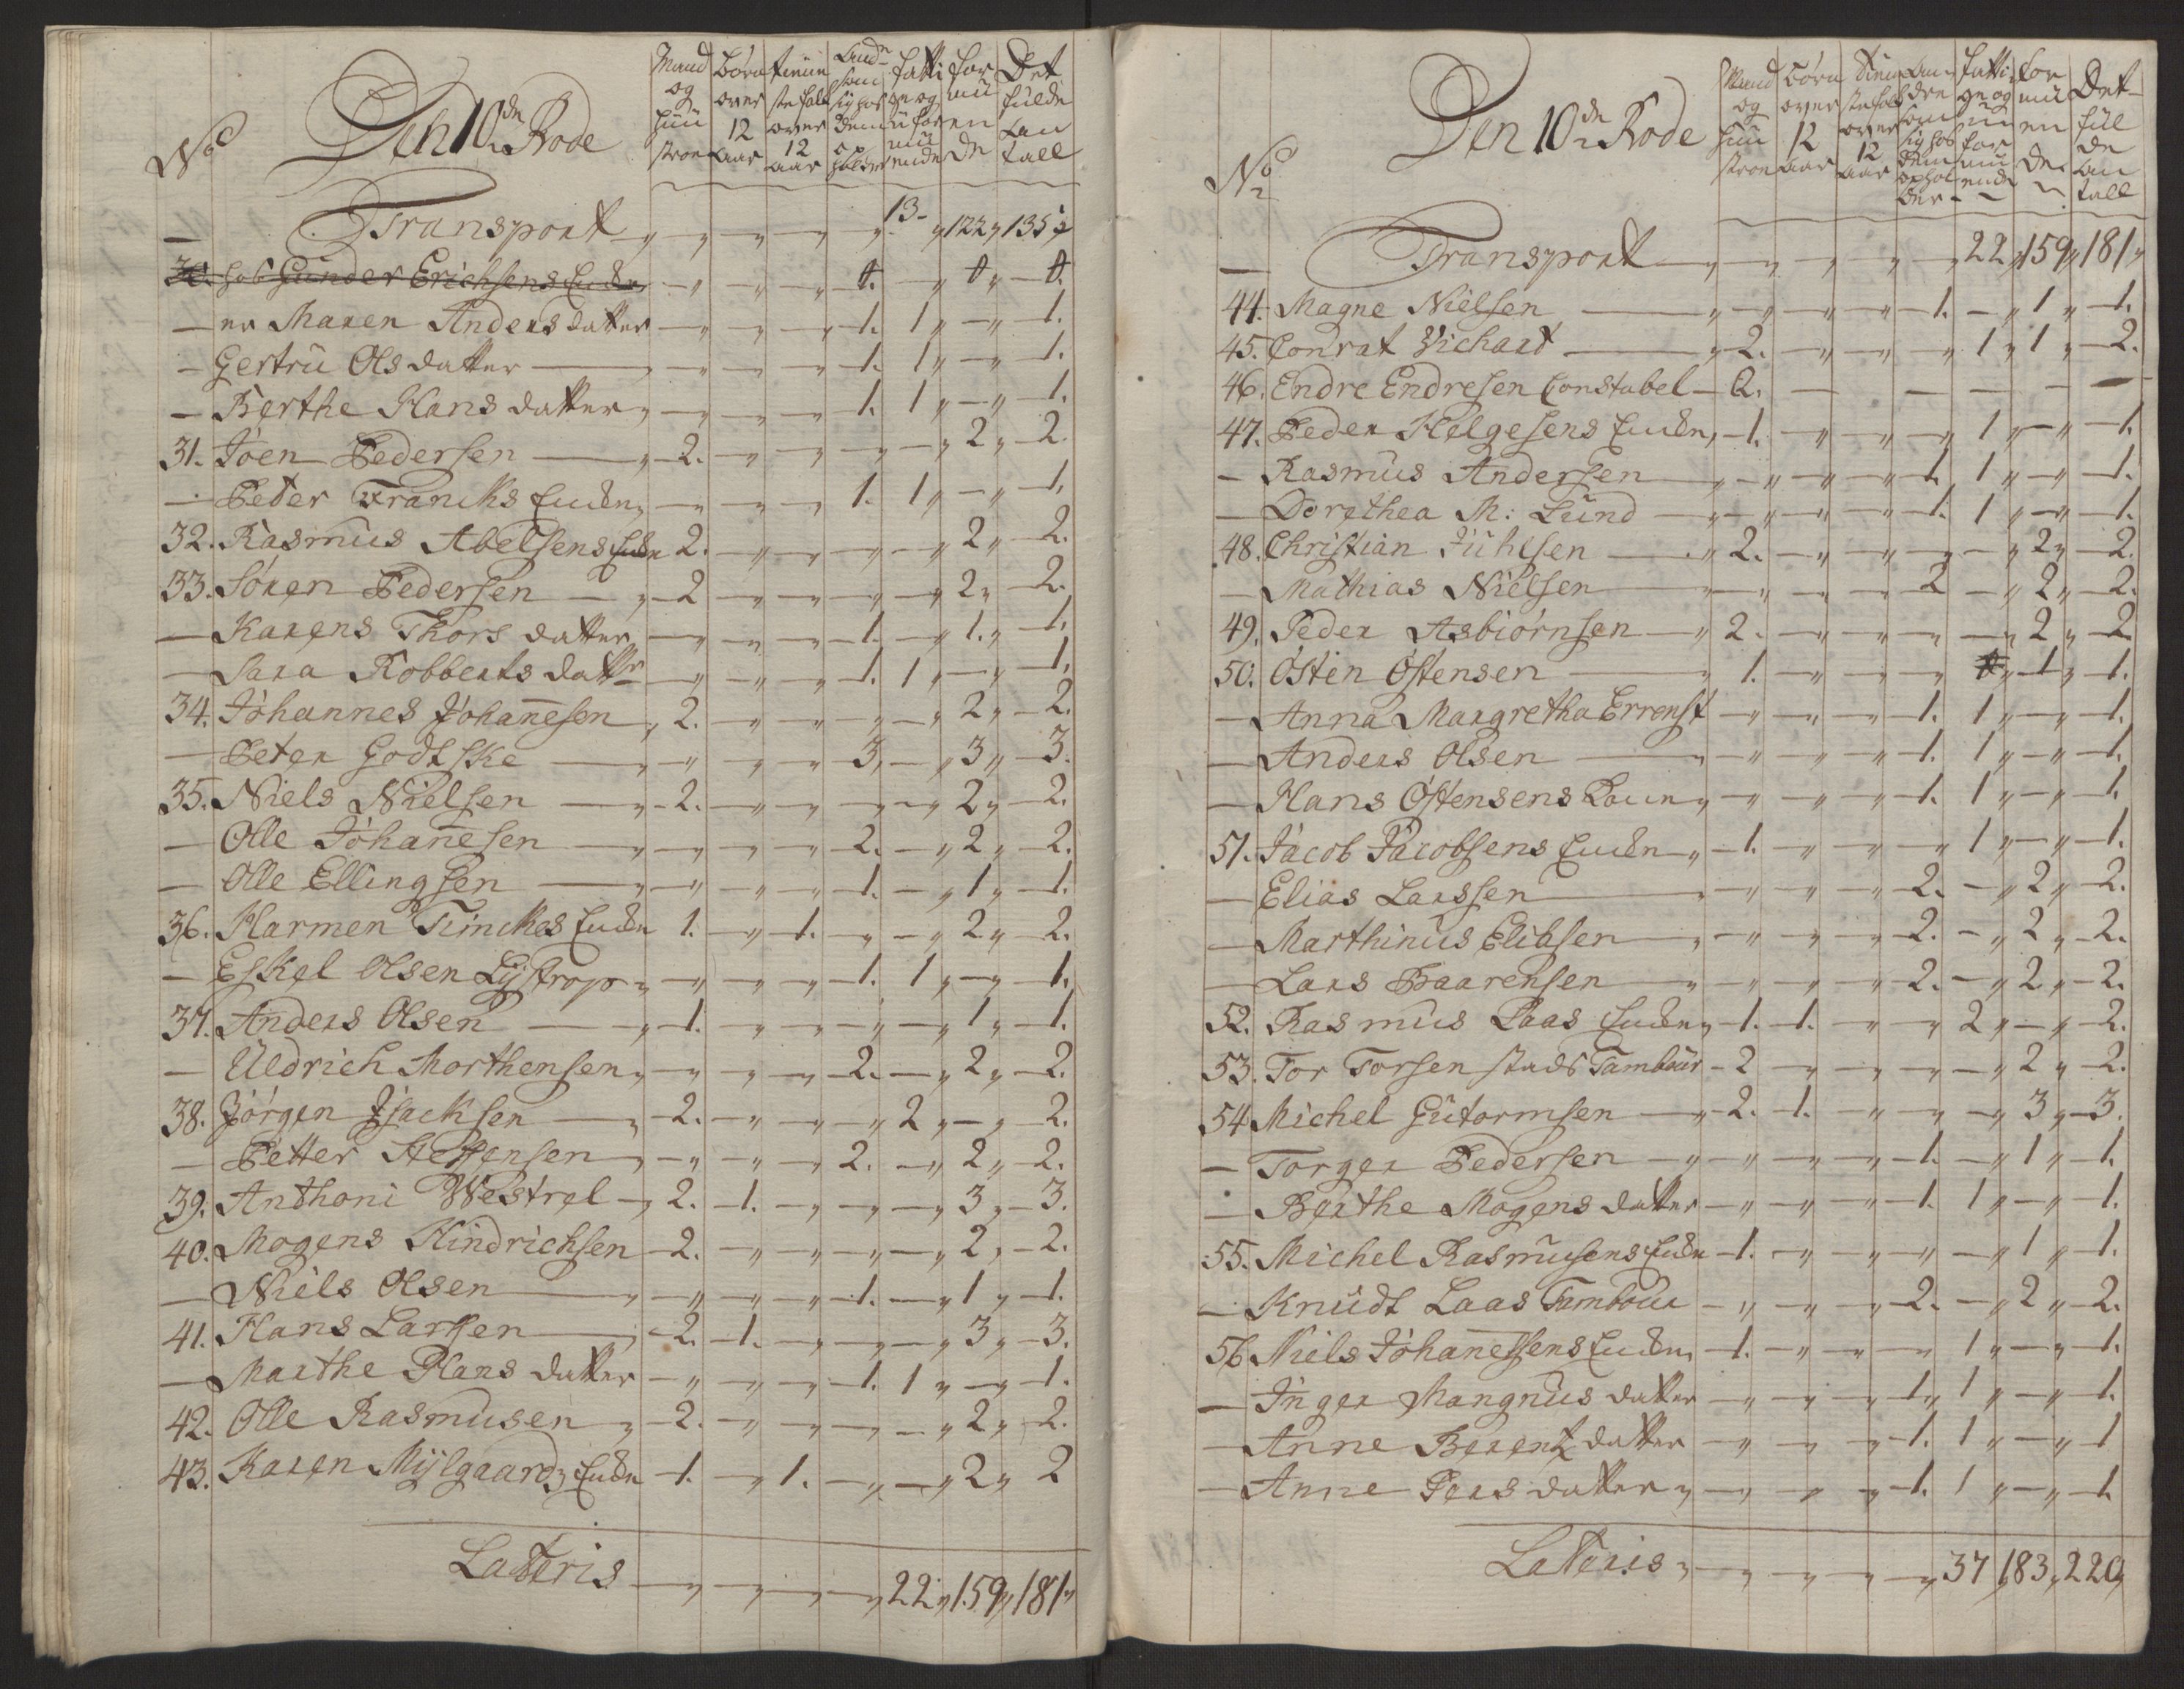 No Den 10de Rode Mand og Hüü stroe Børn over 12 aar tienni ste folk over 12 aar And som sig hos dem op holder fatti ge og ü for mü ende for mü en de Det fulde an tall
Transport 13 122 135
30. hos Gunder Erichsens Enke
Maren Anders datter 1. 1 1.
Gertrü Ols datter 1. 1 1.
Berthe Hans datter 1. 1 1.
31. Joen Pedersen 2. 2 2.
Peder Francks Enke 1. 1 1.
32. Rasmus Abelsens Enke 2. 2 2.
33. Sören Pedersen 2 2 2.
Karens Thors datter 1. 1. 1.
Sara Robberts datter 1. 1 1.
34. Johannes Johañesen 2. 2 2.
Peter Godtske 3. 3 3.
35. Niels Nielsen 2. 2 2.
Olle Johañesen 2. 2 2.
Olle Ellingsen 1. 1 1.
36. Harmen Timckes Enke 1. 1. 2 2.
Eskel Olsen Lystrop 1. 1 1.
37. Anders Olsen 1. 1 1.
Uldrich Morthensen 2. 2 2.
38. Jörgen Jsacksen 2. 2 2.
Petter Steffensen 2. 2 2.
39. Anthoni Westrel 2. 1. 3 3.
40. Mogens Hindrichsen 2. 2 2.
Niels Olsen 1. 1 1.
41. Hans Larsen 2. 1. 3 3.
Marthe Hans datter 1. 1 1.
42. Olle Rasmusen 2. 2 2.
43. Karen Mÿlgaards Enke 1. 1. 2 2
Lateris 22 159 181
No Den 10de Rode Mand og Hüü stroe Børn over 12 aar tieni ste folk over 12 aar An dre som sig hos dem ophol der fatti ge og ü for mü ende for mü en de Det fül de an tall
Transport 22 159 181
44. Magne Nielsen 1. 1 1.
45. Conrat Vichart 2. 1 1 2.
46. Endre Endresen Constabel 2.
47. Peder Helgesens Enke 1. 1 1.
Rasmus Andersen 1. 1 1.
Dorethea M: Lund 1. 1 1.
48. Christian Jühlsen 2. 2 2.
Mathias Nielsen 2 2 2.
49. Peder Asbiörnsen 2. 2 2
50. Östen Östensen 1. 1 1.
Anna Margretha Errenst 1. 1 1.
Anders Olsen 1. 1 1.
Hans Östensens Koene 1. 1 1.
51. Jacob Jacobsens Enke 1. 1 1.
Elias Larssen 2. 2 2.
Marthinus Eliasen 2. 2 2.
Lars Baarensen 2. 2 2.
52. Rasmus Paas Enke 1. 1. 2 2.
53. Tor Torsen stads Tambour 2 2 2.
54 Michel Gütormsen 2. 1. 3 3.
Torger Pedersen 1. 1 1.
Berthe Mogens datter 1. 1 1.
55. Michel Rasmusens Enke 1. 1 1.
Knüdt Laas Tambour 2. 2 2.
56 Niels Johanessens Enke 1. 1 1.
Inger Mangnus datter 1 1 1.
Anne Berentz datter 1. 1 1
Anne Pers datter 1. 1 1.
Lateris 37 183 220